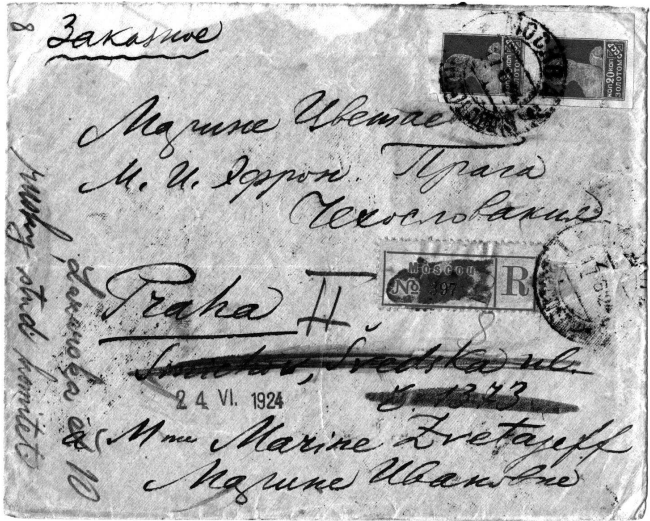 Заказное
МОСКВА
20 КОП
ЗОЛОТОМ
Марине Цветае
М. И. Эфрон. Прага
Чехословакия
MOSCOU
No 397
R
Praha II
Smíchov, Švédská ul.
č 1373
24. VI. 1924
à Mme Marine Zvetajeff
Марине Ивановне
8
ruský stud komitét
10